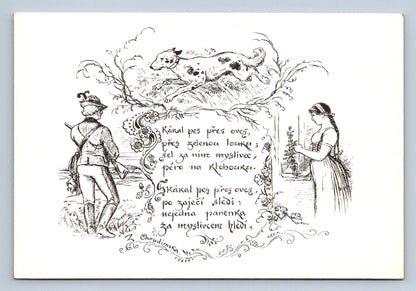 Skákal pes přes oves,
přes zelenou louku;
šel za ním myslivec,
péro na klobouku.
Skákal pes přes oves,
po zaječí sledi;
nejedna panenka
za myslivcem hledí.
Z Chrudimska